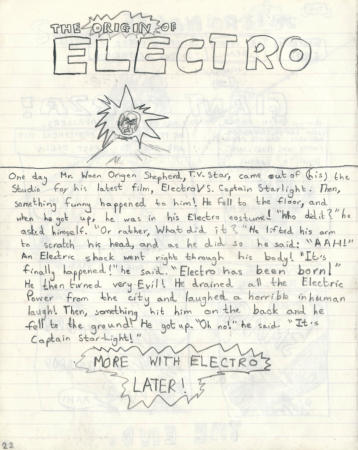 THE ORIGIN OF
ELECTRO
One day Mr. Owen Origen Shepherd, T.V. Star, came out of (his) the
Studio for his latest film, Electro V S. Captain Starlight. Then,
something funny happened to him! He fell to the floor, and
when he got up, he was in his Electro costume! "Who did it?" he
asked himself. "Or rather, What did it? "He lifted his arm
to scratch his head, and as he did so he said: "AAH!"
An Electric shock went right through his body! "It's
finally happened!" he said. "Electro has been born!"
He then turned very Evil! He drained all the Electric
Power from the city and laughed a horrible inhuman
laugh! Then, something hit him on the back and he
fell to the ground! He got up. "Oh no!" he said "It's
Captain Star-Light!"
MORE WITH ELECTRO
LATER!
22